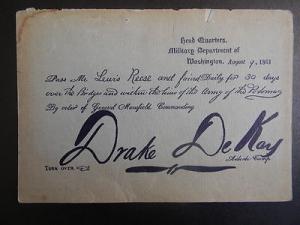 Head Quarters,
Military Department of
Washington, August 9, 1861
Pass Mr Lewis Reese and friend Daily for 30 days
over the Bridges and within the lines of the Army of the Potomac
By order of General Mansfield Commanding
Drake DeKay
Aide de Camp
TURN OVER